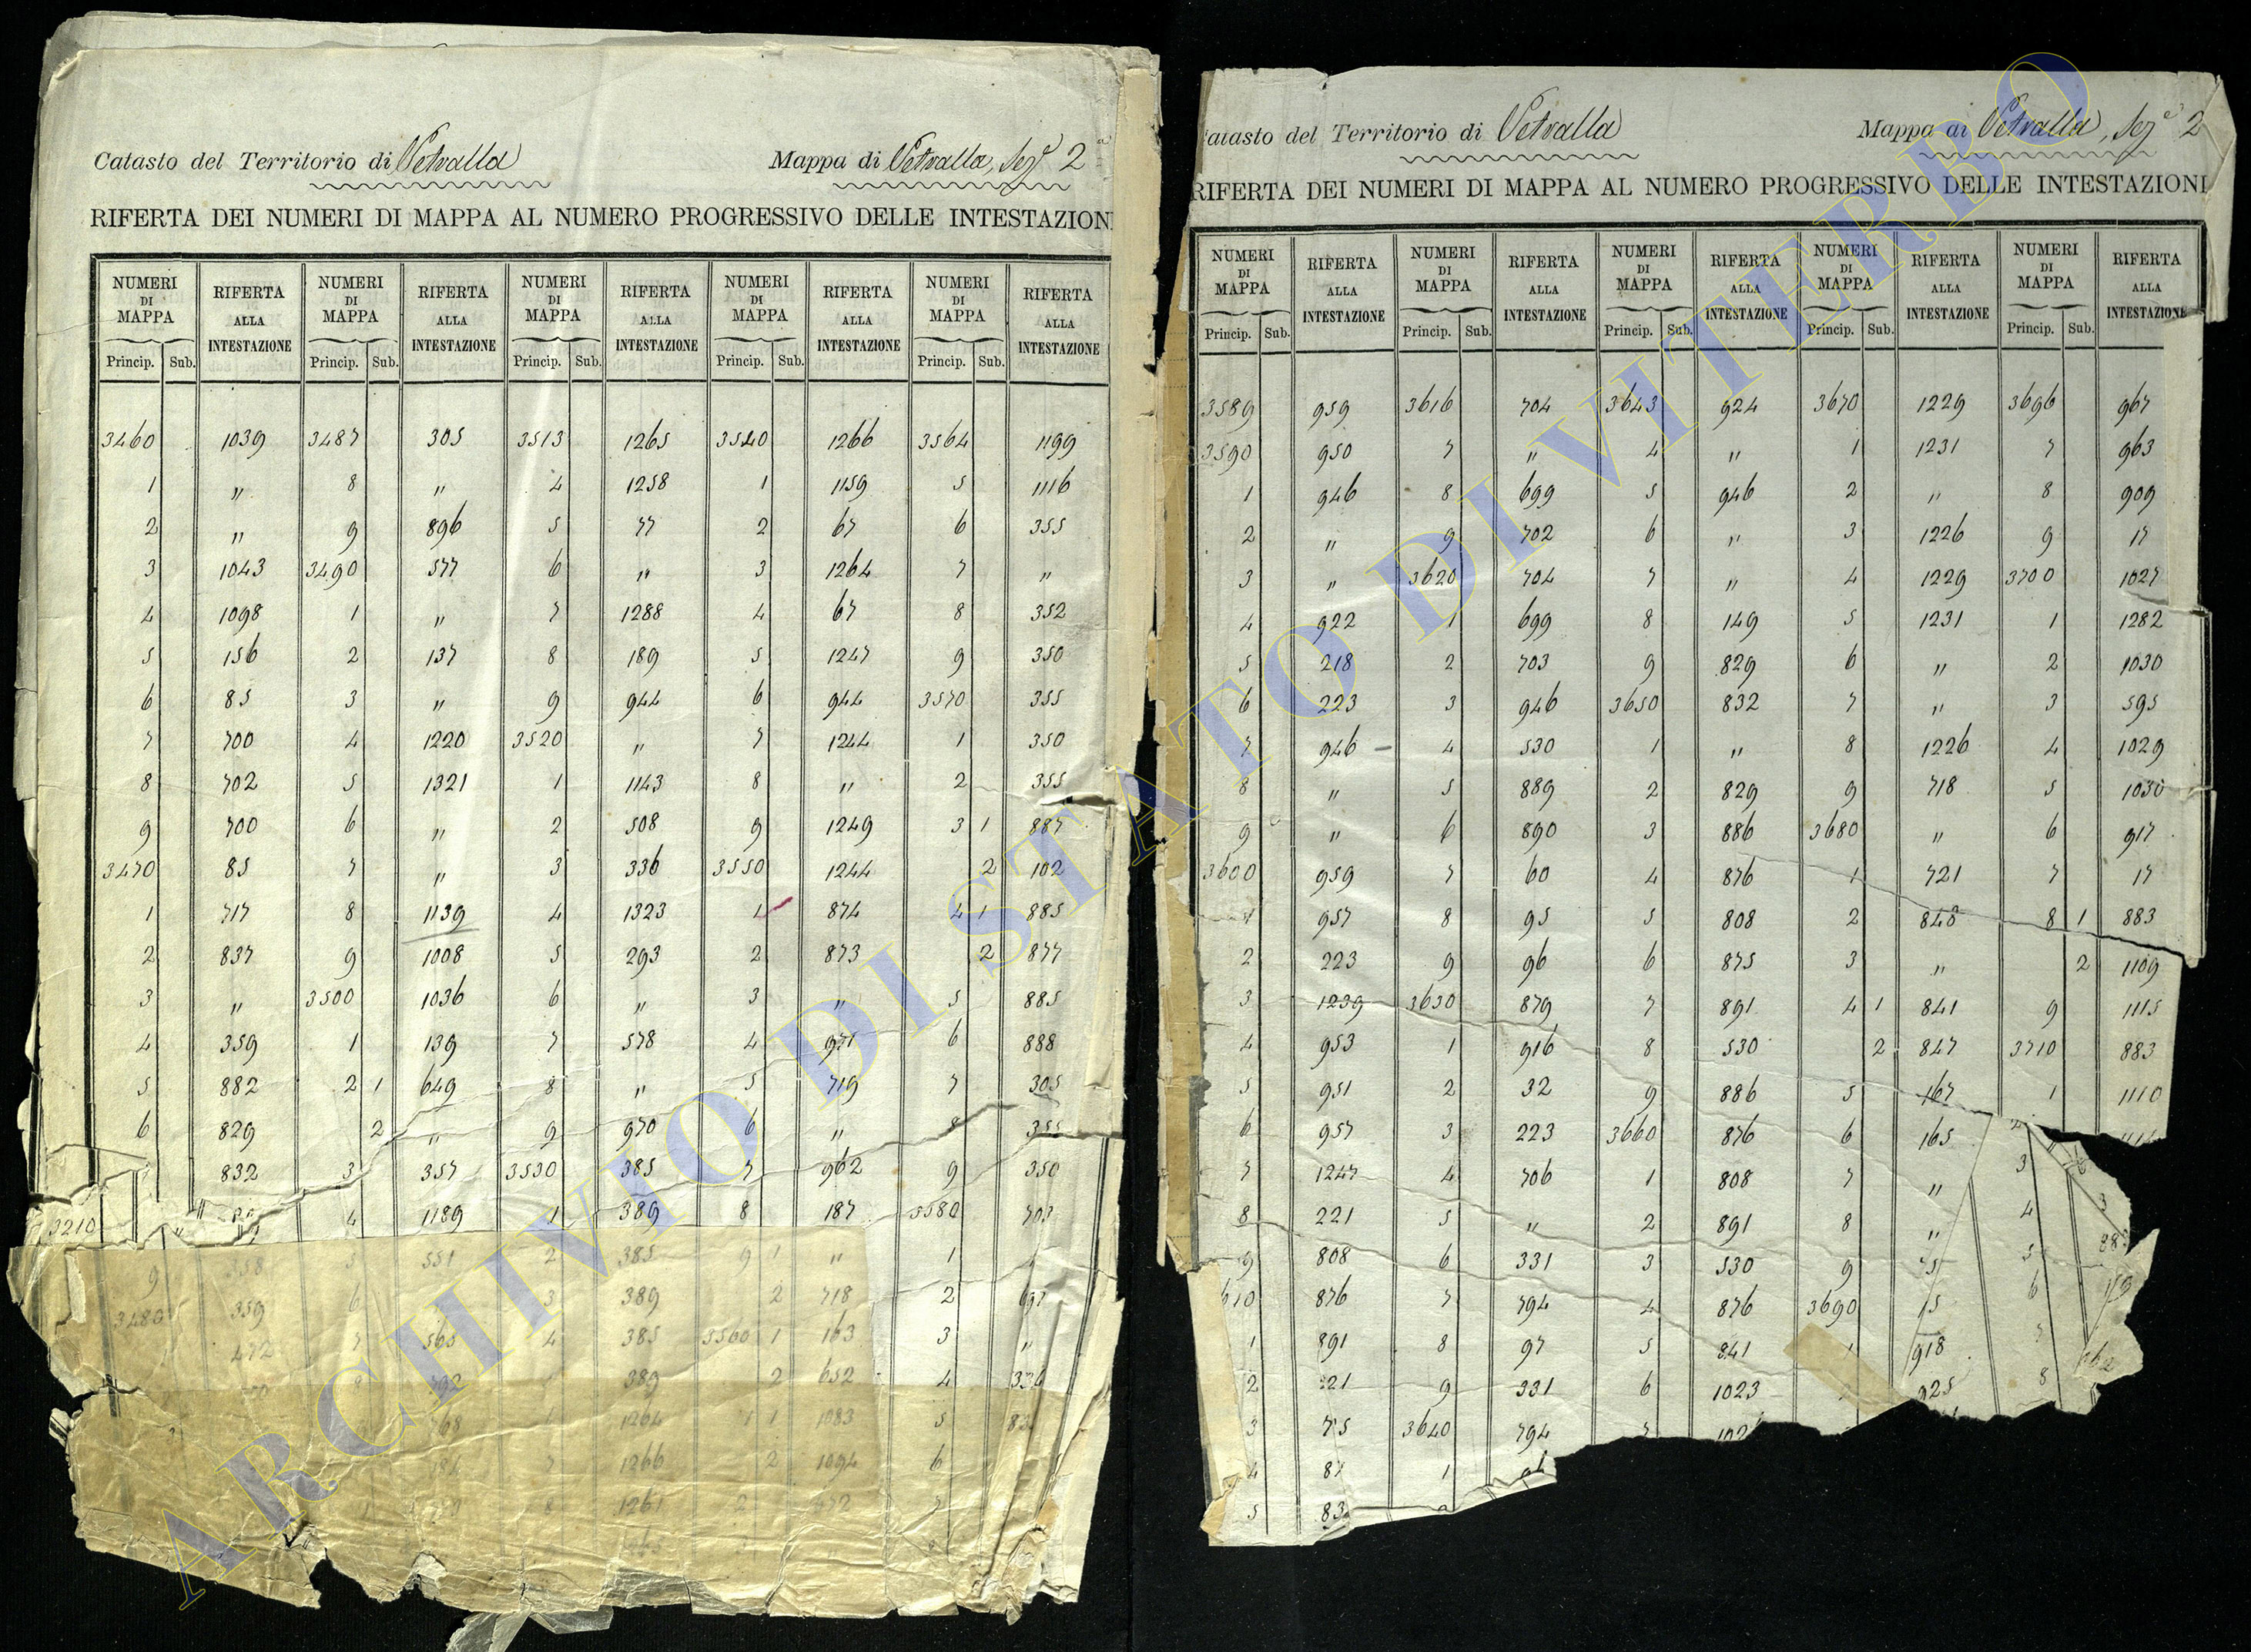 Catasto del Territorio di Vetralla Mappa di Vetralla, Sez.e 2a
RIFERTA DEI NUMERI DI MAPPA AL NUMERO PROGRESSIVO DELLE INTESTAZION
NUMERI DI MAPPA RIFERTA ALLA INTESTAZIONE NUMERI DI MAPPA RIFERTA ALLA INTESTAZIONE NUMERI DI MAPPA RIFERTA ALLA INTESTAZIONE NUMERI DI MAPPA RIFERTA ALLA INTESTAZIONE NUMERI DI MAPPA RIFERTA ALLA INTESTAZIONE
Princip. Sub. Princip. Sub. Princip. Sub. Princip. Sub. Princip. Sub.
3460 1039 3487 305 3513 1265 3540 1266 3564 1199
1 " 8 " 4 1258 1 1159 5 1116
2 " 9 896 5 77 2 67 6 355
3 1043 3490 577 6 " 3 1264 7 "
4 1098 1 " 7 1288 4 67 8 352
5 156 2 137 8 189 5 1247 9 350
6 85 3 " 9 944 6 944 3570 355
7 700 4 1220 3520 " 7 1244 1 350
8 702 5 1321 1 1143 8 " 2 355
9 700 6 " 2 508 9 1249 3 1 887
3470 85 7 " 3 336 3550 1244 2 102
1 717 8 1139 4 1323 1 874 4 1 885
2 837 9 1008 5 293 2 873 2 877
3 " 3500 1036 6 " 3 " 5 885
4 359 1 139 7 578 4 971 6 888
5 882 2 1 649 8 " 5 719 7 305
6 829 2 " 9 970 6 " 8 355
832 3 357 3530 385 7 962 9 350
3210 " " 4 1189 1 389 8 187 3580 703
9 358 5 551 2 385 9 1 " 1
3480 359 6 3 389 2 718 2 697
472 7 565 4 385 3560 1 163 3 "
8 792 389 2 652 4 334
768 1264 1 1083 5 83
184 7 1266 2 1094 6
8 1261 2 872
Catasto del Territorio di Vetralla Mappa di Vetralla, Sez.e 2
RIFERTA DEI NUMERI DI MAPPA AL NUMERO PROGRESSIVO DELLE INTESTAZIONI
NUMERI DI MAPPA RIFERTA ALLA INTESTAZIONE NUMERI DI MAPPA RIFERTA ALLA INTESTAZIONE NUMERI DI MAPPA RIFERTA ALLA INTESTAZIONE NUMERI DI MAPPA RIFERTA ALLA INTESTAZIONE NUMERI DI MAPPA RIFERTA ALLA INTESTAZIONE
Princip. Sub. Princip. Sub. Princip. Sub. Princip. Sub. Princip. Sub.
3589 959 3616 704 3643 924 3670 1229 3696 967
3590 950 7 " 4 " 1 1231 7 963
1 946 8 699 5 946 2 " 8 909
2 " 9 702 6 " 3 1226 9 17
3 " 3620 704 7 " 4 1229 3700 1027
4 922 1 699 8 149 5 1231 1 1282
5 218 2 703 9 829 6 " 2 1030
6 223 3 946 3650 832 7 " 3 595
7 946 4 530 1 " 8 1226 4 1029
8 " 5 889 2 829 9 718 5 1030
9 " 6 890 3 886 3680 " 6 917
3600 959 7 60 4 876 1 721 7 17
1 957 8 95 5 808 2 848 8 1 883
2 223 9 96 6 875 3 " 2 1109
3 1239 3630 879 7 891 4 1 841 9 1115
4 953 1 916 8 530 2 847 3710 883
5 951 2 32 9 886 5 167 1 1110
6 957 3 223 3660 876 6 165
7 1247 4 706 1 808 7 " 3
8 221 5 " 2 891 8 " 4 3
9 808 6 331 3 530 9 5 883
610 876 7 794 4 876 3690 6
1 891 8 97 5 841 1 918
2 221 9 331 6 1023 925 8
3 75 3640 794 7 102
4 87 1
5 83
ARCHIVIO DI STATO DI VITERBO